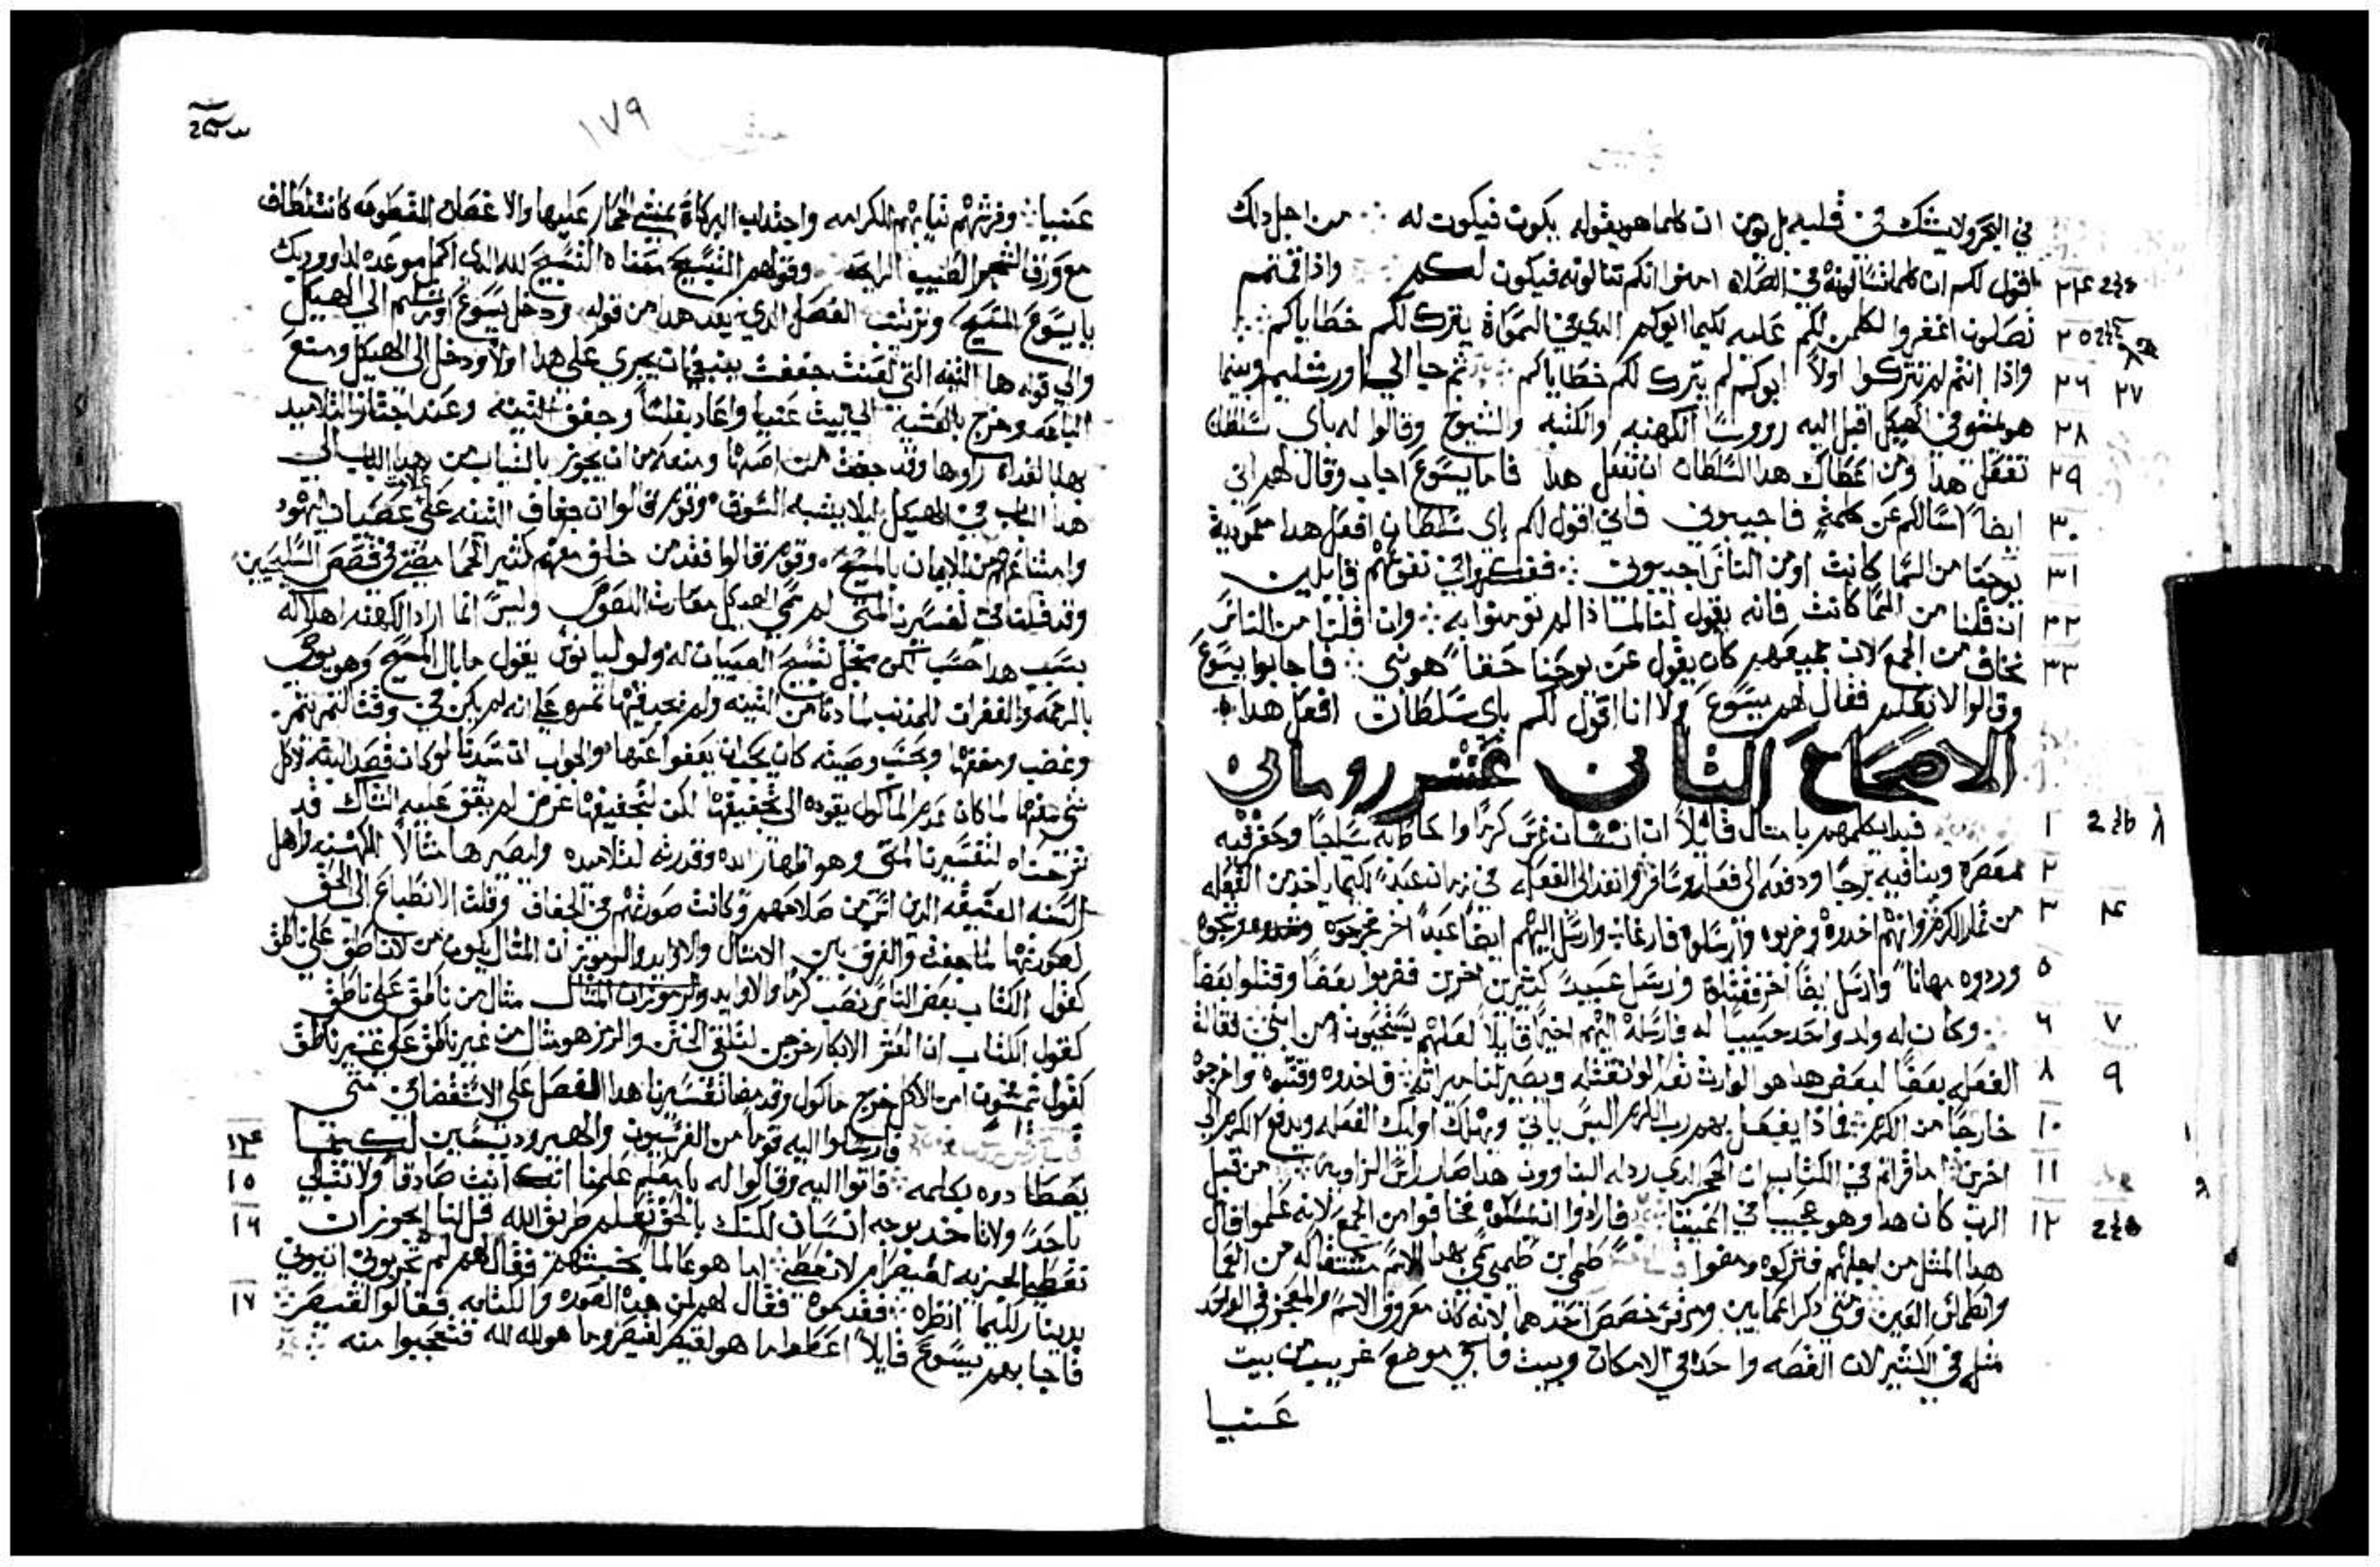 في البحر ولا يشك في قلبه بل يومن ان كلما هو يقوله يكون فيكون له من اجل ذلك
٢٤ اقول لكم ان كلما تسالونه في الصلاه امنوا انكم تنالونه فيكون لكم واذا قمتم
٢٥ تصلون اغفروا لكلمن لكم عليه لكيما ابوكم الدي في السموات يترك لكم خطاياكم
٢٦ ٢٧ واذا انتم لم تتركوا اولا ابوكم لم يترك لكم خطاياكم ثم جا الي اورشليم وبينما
٢٨ هو يمشي في الهيكل اقبل اليه رووسا الكهنه والكتبه والشيوخ وقالوا له باي سلطان
٢٩ تفعل هدا ومن اعطاك هدا السلطان ان تفعل هدا فاما يسوع اجاب وقال لهم اني
٣٠ ايضا اسالكم عن كلمة فاجيبوني فاني اقول لكم باي سلطان افعل هدا معمودية
٣١ يوحنا من السما كانت او من الناس اجيبوني ففكروا في نفوسهم قايلين
٣٢ ان قلنا من السما كانت فانه يقول لنا لماذا لم تومنوا به وان قلنا من الناس
٣٣ نخاف من الجمع لان جميعهم كان يقول عن يوحنا حقا هو نبي فاجابوا يسوع
وقالوا لا نعلم فقال لهم يسوع ولا انا اقول لكم باي سلطان افعل هدا
الاصحاح الثاني عشر روماني
١ فبدا يكلمهم بامثال قايلا ان انسان غرس كرما واحاطه سياجا وحفر فيه
٢ معصره وبنا فيه برجا ودفعه الي فعله وسافر وانفد الي الفعله في زمانه عبدا لكيما ياخد من الفعله
٣ ٤ من ثمار الكرم وانهم اخدوه وضربوه وارسلوه فارغا وارسل اليهم ايضا عبدا اخر فجرحوه
٥ وردوه مهانا وارسل ايضا اخر فقتلوه وارسل عبيدا كثيرين اخرين فضربوا بعضا وقتلوا بعضا
٦ ٧ وكان له ولد واحد حبيبا له فارسله اليهم اخيرا قايلا لعلهم يستحيون من ابني فقالة
٨ ٩ الفعله بعضا لبعض هدا هو الوارث تعالوا نقتله ويصير لنا ميراثه فاخدوه وقتلوه واخرجوه
١٠ خارجا من الكرم فماذا يفعل بهم رب الكرم اليس ياتي ويهلك اوليك الفعله ويدفع الكرم الي
١١ اخرين اما قراتم في الكتاب ان الحجر الدي ردله البناوون هدا صار راس الزاويه من قبل
١٢ الرب كان هدا وهو عجيب في اعيننا فارادوا ان يمسكوه فخافوا من الجمع لانه علموا قال
هدا المثل من اجلهم فتركوه ومضوا طيمي ابن طيمي سمي بهدا الاسم مشتقا له من العما
وانطماس العين ومتي دكر اعمايين ومرقس خصص احدهما لانه كان معروف الاسم والمعجز في الواحد
مثله في الكثير لان القصه واحده في الامكان وبيت فاجي موضع غريب من بيت
عنيا
١٧٩
عنيا وفرشهم ثيابهم للكرامه واجتداب البركاة بمشي الحمار عليها والاغصان المقطوعه كانت لطاف
مع ورق الشجر الطيب الرايحه وقولهم التسبيح معناه التسبيح لله الدي اكمل موعده لداوود بك
يا يسوع المسيح وترتيب الفصل الدي بعد هدا من قوله ودخل يسوع اورشليم الي الهيكل
والي قوله ها التينه التي لعنت جففت ينبغي ان يجري علي هدا اولا ودخل الي الهيكل ومنع
الباعه وخرج بالعشيه الي بيت عنيا واعاد بقلسا وجفف التينه وعند اجتاز التلاميد
بها لغداه راوها وقد جفت من اصلها ومنعه من ان يجوز بالثياب من هدا الباب الي
هدا الباب في الهيكل ليلا يشبه السوق وقوم قالوا ان جفاف التينه علي عصيان اليهود
وامتناعهم من الايمان بالمسيح وقوم قالوا فقد من خلق منهم كثير كما مضي في قصص السليحيين
وقد قلنا في تفسيرنا لمتي لم سمي الهيكل مغارة اللصوص وليس انما اراد الكهنه اهلاكه
بسبب هدا حسب لكن من اجل تسبيح الصبيان له ولوليانوس يقول ما بال المسيح وهو يوصي
بالرحمه والغفران للمدنب لما دنا من التينه ولم يجد فيها ثمره علي انه لم يكن في وقت الثمر تثمر
وغضب ومقتها وبحسب وصيته كان يجب ان يعفوا عنها والجواب ان سيدنا لو كان قصد التينه لاكل
شي منها لما كان عدم الماكول يقوده الي تجفيفها لكن لتجفيفها غرض لم يقف عليه الشاك قد
شرحناه لتفسيرنا لمتي وهو اظهار ايده وقدرته لتلاميده وليصيرها مثالا للكهنه ولاهل
السنه العتيقه الدين ايس من صلاحهم وكانت صورتهم في الجفاف وقلت الانطباع الي الحق
كصورتها لما جفت والفرق بين الامثال والاوابد والرموز ان المثال يكون من لا ناطق علي ناطق
كقول الكتاب بعض الناس نصب كرما والاوابد والرموز ان المثال مثال من ناطق علي ناطق
كقول الكتاب ان العشر الابكار خرجن لتلقي الختن والرمز هو مثال من غير ناطق علي غير ناطق
كقول شمشون من الاكل خرج ماكول وقد مضا تفسيرنا هدا الفصل علي الاستقصا في متي
١٣ ١٤ فارسلوا اليه قوما من الفريسيون والهيروديسيين لكيما
١٥ يصطادوه بكلمه فاتوا اليه وقالوا له يا معلم علمنا انك انت صادقا ولا تبالي
١٦ باحد ولا تاخد بوجه انسان لكنك بالحق تعلم طريق الله قل لنا ايجوز ان
تعطي الجزيه لقيصر ام لا نعطي اما هو عالما بخبثهم فقال لهم لم تجربوني اتيوني
١٧ بدينار لكيما انظره فقدموه فقال لهم لمن هده الصوره والكتابه فقالوا لقيصر
فاجابهم يسوع قايلا اعطوا ما هو لقيصر لقيصر وما هو لله لله فتعجبوا منه